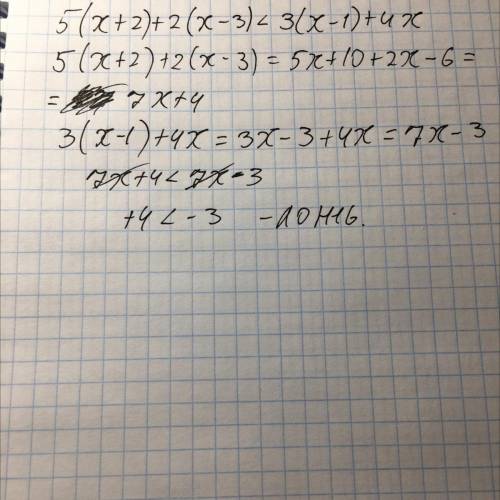 5(x+2)+2(x-3)<3(x-1)+4x
5(x+2)+2(x-3)=5x+10+2x-6=
= 7x+4
3(x-1)+4x=3x-3+4x=7x-3
7x+4<7x-3
+4<-3 -ложь.